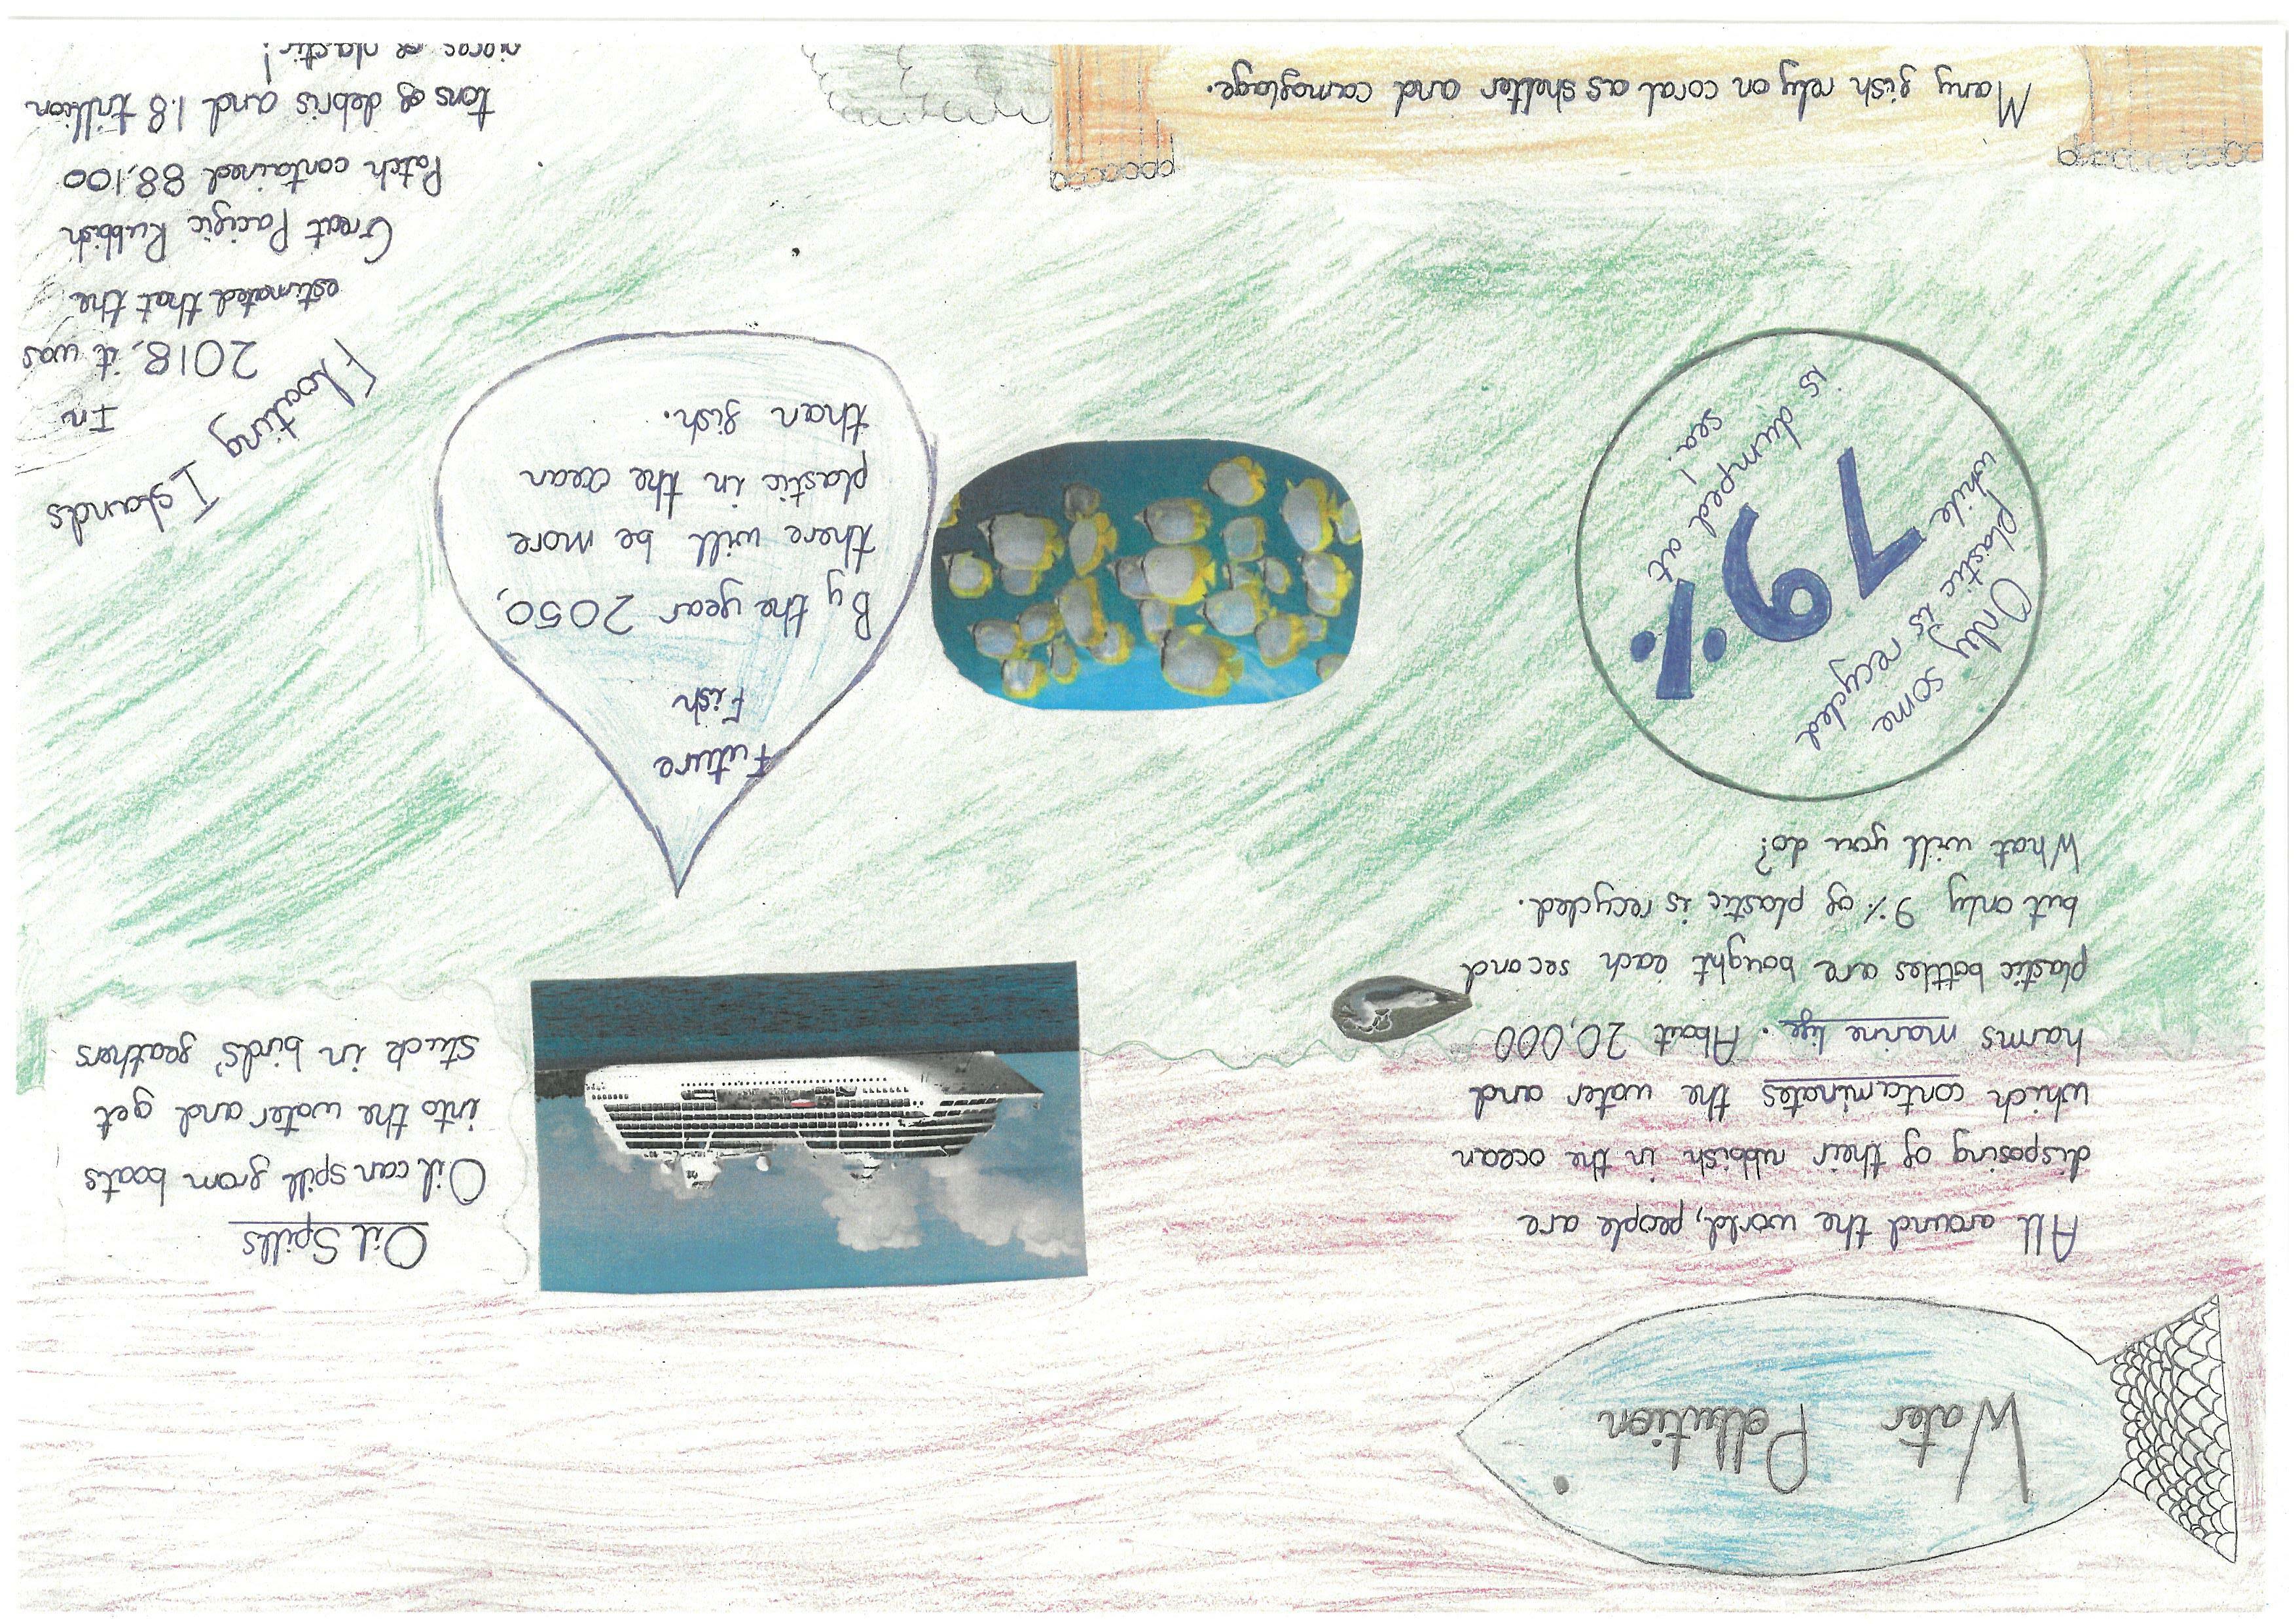 Water Pollution
All around the world, people are
disposing of their rubbish in the ocean
which contaminates the water and
harms marine life. About 20,000
plastic bottles are bought each second
but only 9% of plastic is recycled.
What will you do?
Oil Spills
Oil can spill from boats
into the water and get
stuck in birds' feathers
Only some
plastic is recycled
while
79%
is dumped at
sea!
Future
Fish
By the year 2050,
there will be more
plastic in the ocean
than fish.
Floating Islands
In
2018, it was
estimated that the
Great Pacific Rubbish
Patch contained 88,100
tons of debris and 1.8 trillion
pieces of plastic!
Many fish rely on coral as shelter and camoflage.